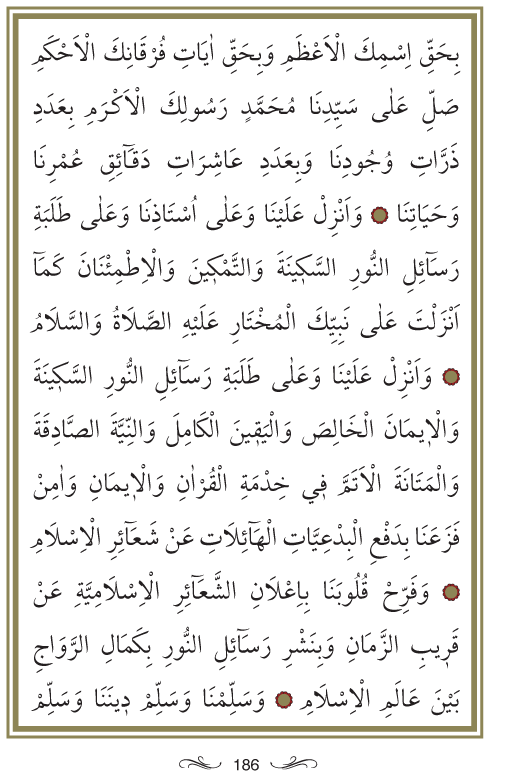 بِحَقِّ اِسْمِكَ الْاَعْظَمِ وَبِحَقِّ اٰيَاتِ فُرْقَانِكَ الْاَحْكَمِ
صَلِّ عَلٰى سَيِّدِنَا مُحَمَّدٍ رَسُولِكَ الْاَكْرَمِ بِعَدَدِ
ذَرَّاتِ وُجُودِنَا وَبِعَدَدِ عَاشِرَاتِ دَقَٓائِقِ عُمْرِنَا
وَحَيَاتِنَا ۞ وَاَنْزِلْ عَلَيْنَا وَعَلٰى اُسْتَاذِنَا وَعَلٰى طَلَبَةِ
رَسَٓائِلِ النُّورِ السَّكٖينَةَ وَالتَّمْكٖينَ وَالْاِطْمِئْنَانَ كَمَٓا
اَنْزَلْتَ عَلٰى نَبِيِّكَ الْمُخْتَارِ عَلَيْهِ الصَّلَاةُ وَالسَّلَامُ
۞ وَاَنْزِلْ عَلَيْنَا وَعَلٰى طَلَبَةِ رَسَٓائِلِ النُّورِ السَّكٖينَةَ
وَالْاٖيمَانَ الْخَالِصَ وَالْيَقٖينَ الْكَامِلَ وَالنِّيَّةَ الصَّادِقَةَ
وَالْمَتَانَةَ الْاَتَمَّ فٖي خِدْمَةِ الْقُرْاٰنِ وَالْاٖيمَانِ وَاٰمِنْ
فَزَعَنَا بِدَفْعِ الْبِدْعِيَّاتِ الْهَٓائِلَاتِ عَنْ شَعَٓائِرِ الْاِسْلَامِ
۞ وَفَرِّحْ قُلُوبَنَا بِاِعْلَانِ الشَّعَٓائِرِ الْاِسْلَامِيَّةِ عَنْ
قَرٖيبِ الزَّمَانِ وَبِنَشْرِ رَسَٓائِلِ النُّورِ بِكَمَالِ الرَّوَاجِ
بَيْنَ عَالَمِ الْاِسْلَامِ ۞ وَسَلِّمْنَا وَسَلِّمْ دٖينَنَا وَسَلِّمْ
186